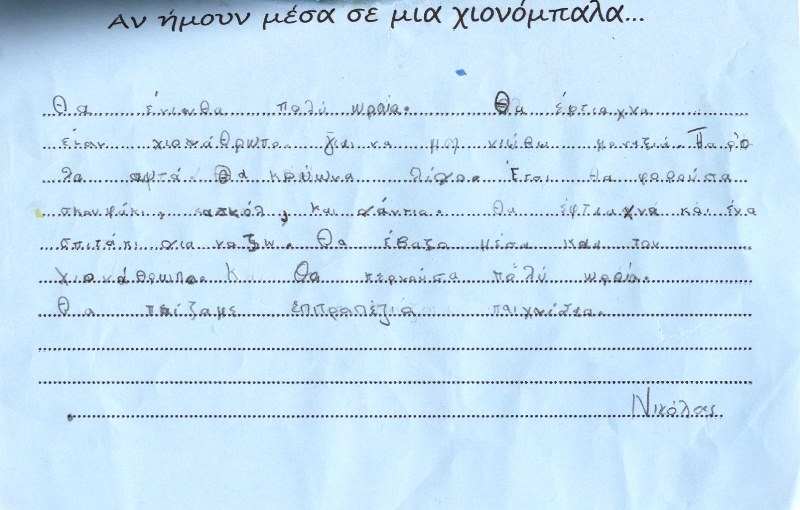 Αν ήμουν μέσα σε μια χιονόμπαλα...
Θα ένιωθα πολύ ωραία. Θα έφτιαχνα
έναν χιονάθρωπο. για να μην νιώθω μοναξιά. Παρό
λα αυτά θα κρύωνα λίγο. Έτσι θα φορούσα
σκουφάκι, κασκόλ, και γάντια. Θα έφτιαχνα και ένα
σπιτάκι για να ζω. Θα έβαζα μέσα και τον
χιονάθρωπο. Θα περνούσα πολύ ωραία.
Θα παίζαμε επιτραπέζια παιχνίδια.
Νικόλας